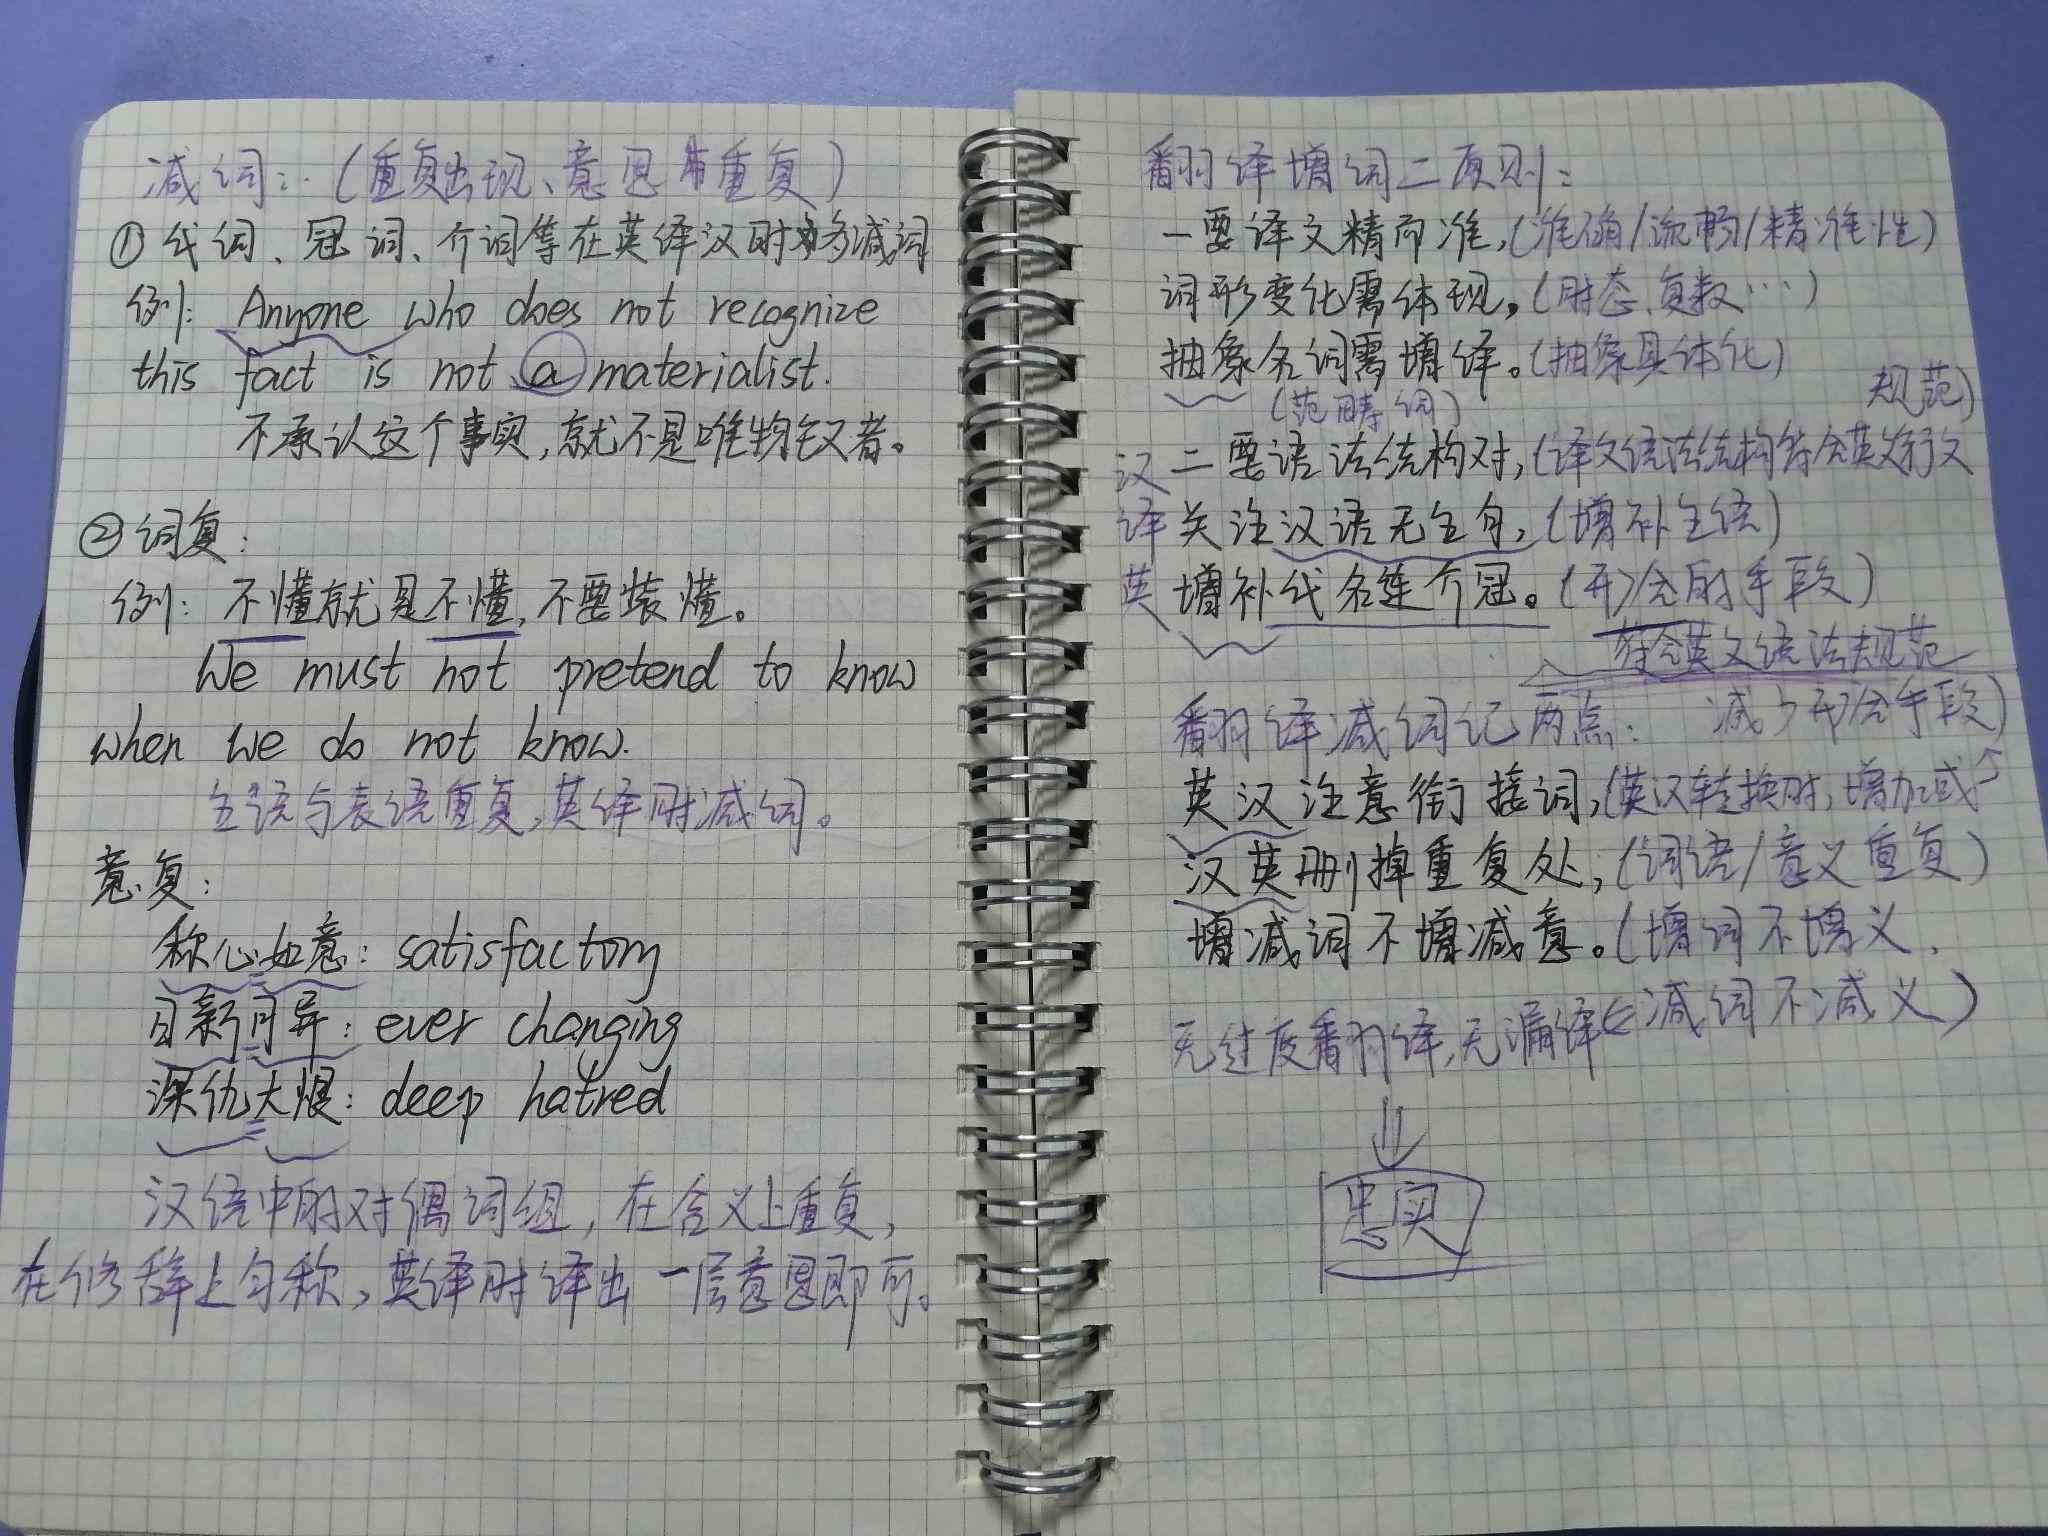 减词：（重复出现、意思重复）
①代词、冠词、介词等在英译汉时多减词
例：Anyone who does not recognize
this fact is not a materialist.
不承认这个事实，就不是唯物主义者。
②词复：
例：不懂就是不懂，不要装懂。
We must not pretend to know
when we do not know.
主语与表语重复，英译时减词。
意复：
称心如意：satisfactory
日新月异：ever changing
深仇大恨：deep hatred
汉语中的对偶词组，在含义上重复，
在修辞上匀称，英译时译出一层意思即可。
翻译增词二原则：
一要译文精而准，（准确/流畅/精准性）
词形变化需体现，（时态、复数…）
抽象名词需增译。（抽象具体化）
（范畴词）
规范）
二要语法结构对，（译文语法结构符合英文行文
汉译英
关注汉语无主句，（增补主语）
增补代名连介冠。（形合的手段）
符合英文语法规范
翻译减词记两点： 减少形合手段）
英汉注意衔接词，（英汉转换时，增加或
汉英删掉重复处，（词语/意义重复）
增减词不增减意。（增词不增义，
无过度翻译，无漏译⇐减词不减义）
忠实